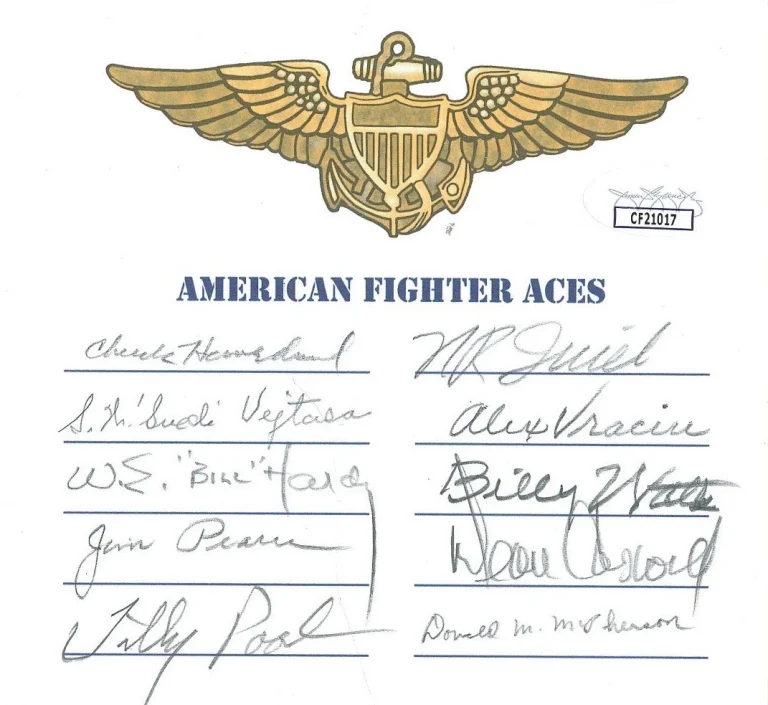 CF21017
AMERICAN FIGHTER ACES
Chuck Haverland
N R Quiel
S. W. "Swede" Vejtasa
Alex Vraciu
W.E. "BILL" Hardy
Billy Watts
Jim Pearce
Dean Caswell
Tilly Pool
Donald M. McPherson